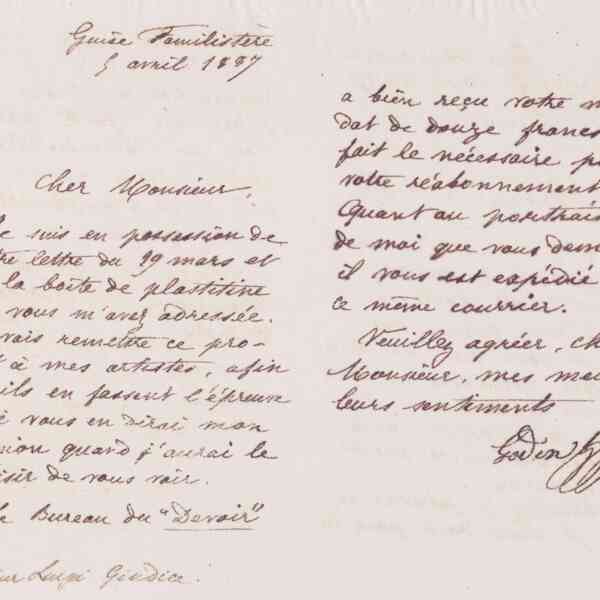 Guise Familistère
5 avril 1887
Cher Monsieur,
Je suis en possession de
tre lettre du 29 mars et
la boîte de plastitine
vous m'avez adressée.
vais remettre ce pro-
à mes artistes, afin
ils en fassent l'épreuve
vous en dirai mon
nion quand j'aurai le
isir de vous voir.
Le Bureau du "Devoir"
eur Luigi Giudice.
a bien reçu votre m
dat de douze francs
fait le nécessaire p
votre réabonnement
Quant au portrait
de moi que vous dem
il vous est expédié
ce même courrier.
Veuillez agréer, ch
Monsieur, mes mei
leurs sentiments
Godin